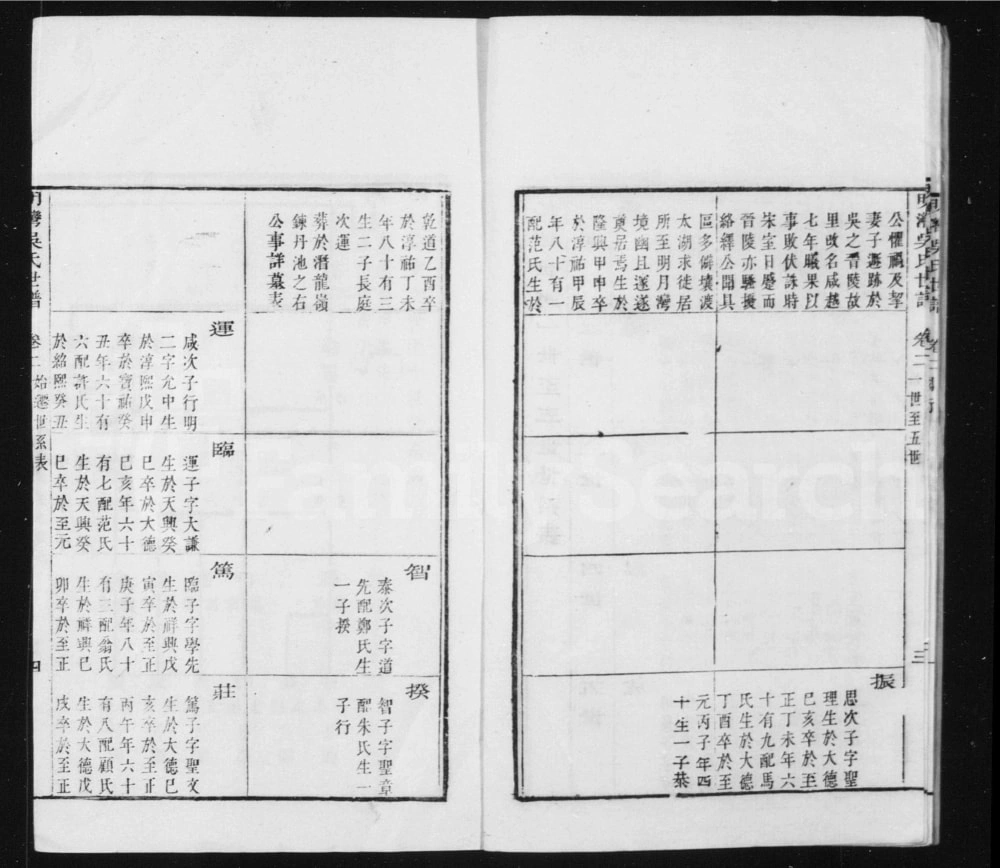 明灣吳氏世譜 卷二 一世至五世 三
公懼禍及挈
妻子遯跡於
吳之晉陵故
里改名咸越
七年賊果以
事敗伏誅時
宋室日蹙而
晉陵亦騷擾
絡繹公聞具
區多僻壤渡
太湖求徒居
所至明月灣
境幽且邃遂
奠居焉生於
隆興甲申卒
於淳祐甲辰
年八十有一
配范氏生於
振
思次子字聖
理生於大德
己亥卒於至
正丁未年六
十有九配馬
氏生於大德
丁酉卒於至
元丙子年四
十生一子棻
乾道乙酉卒
於淳祐丁未
年八十有三
生二子長庭
次運
葬於潛龍嶺
鍊丹池之右
公事詳墓表
智
泰次子字道
先配鄭氏生
一子揆
揆
智子字聖章
配朱氏生一
子行
運
咸次子行明
二字允中生
於淳熙戊申
卒於寶祐癸
丑年六十有
六配許氏生
於紹熙癸丑
臨
運子字大謙
生於天興癸
巳卒於大德
己亥年六十
有七配范氏
生於天興癸
巳卒於至元
篤
臨子字學先
生於祥興戊
寅卒於至正
庚子年八十
有三配翁氏
生於祥興己
卯卒於至正
莊
篤子字聖文
生於大德己
亥卒於至正
丙午年六十
有八配顧氏
生於大德戊
戌卒於至正
明灣吳氏世譜 卷二 始遷世系表 四
FamilySearch